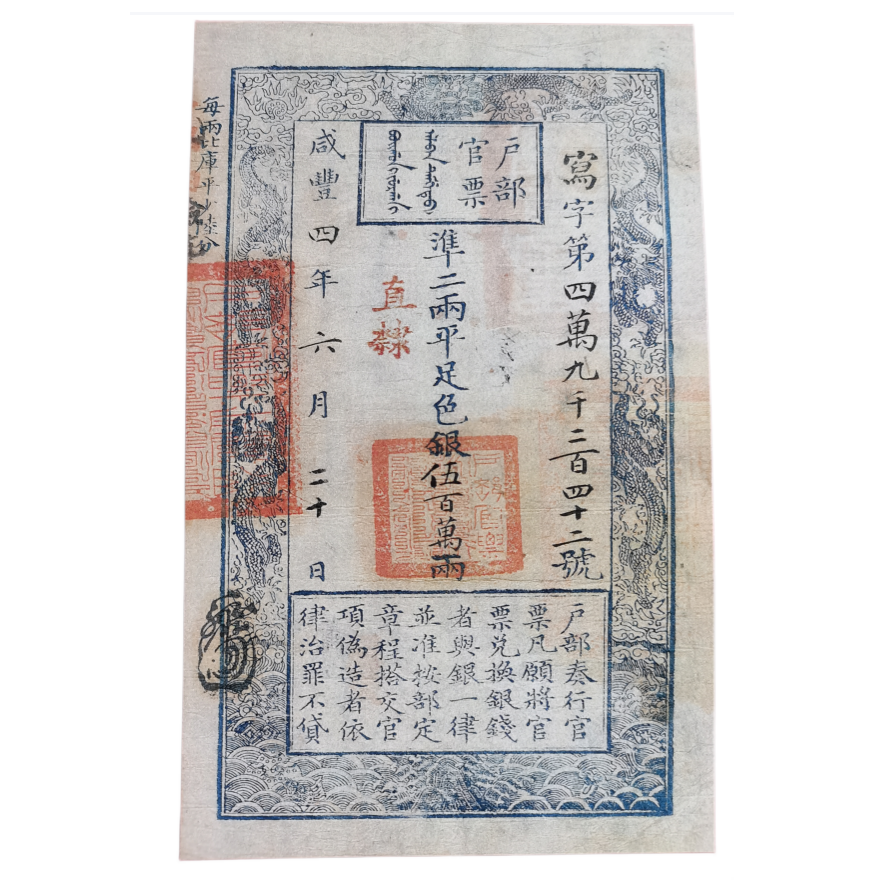 戶部
官票
寫字第四萬九千二百四十二號
準二兩平足色銀伍百萬兩
直隸
咸豐四年六月二十日
每兩比庫平少陸分
戶部奏行官
票凡願將官
票兌換銀錢
者與銀一律
並准按部定
章程搭交官
項偽造者依
律治罪不貸